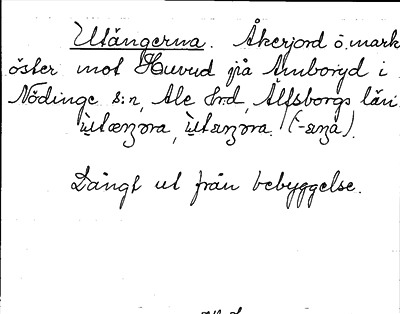 Utängerna. Åkerjord o. mark
öster mot Huvud på Amboryd i
Nödinge s:n, Ale hd, Älfsborgs län.
Långt ut från bebyggelse.